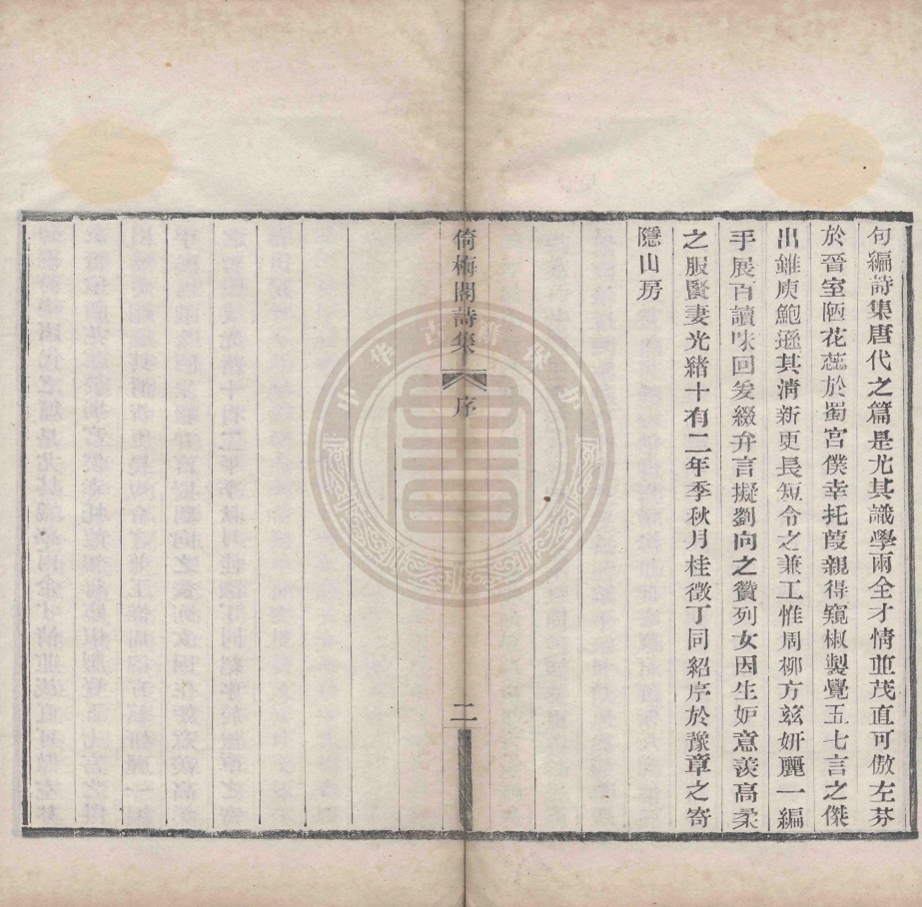 句編詩集唐代之篇是尤其識學兩全才情並茂直可傲左芬
於晉室陋花蕊於蜀宮僕幸托葭親得窺椒製覺五七言之傑
出雖庾鮑遜其淸新更長短令之兼工惟周柳方玆妍麗一編
手展百讀味回爰綴弁言擬劉向之贊列女因生妒意羨高柔
之服賢妻光緖十有二年季秋月桂徵丁同紹序於豫章之寄
隱山房
倚梅閣詩集
序
二